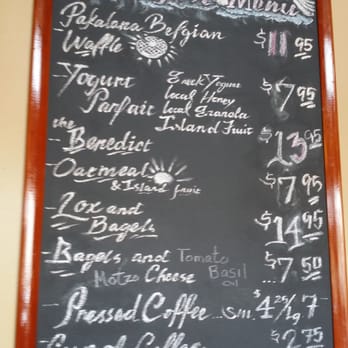 Menu
Pakalana Belgian
Waffle $11 95
Yogurt Greek Yogurt
Parfait Local Honey $7 95
Local Granola
Island Fruit
the
Benedict $13 95
Oatmeal $7 95
& Island fruit
Lox and
Bagels $14 95
Bagels and Tomato
Motzo Cheese Basil ...7 50
oil
Pressed Coffee ... sm $4 25/lg 7
Coffee $2 75